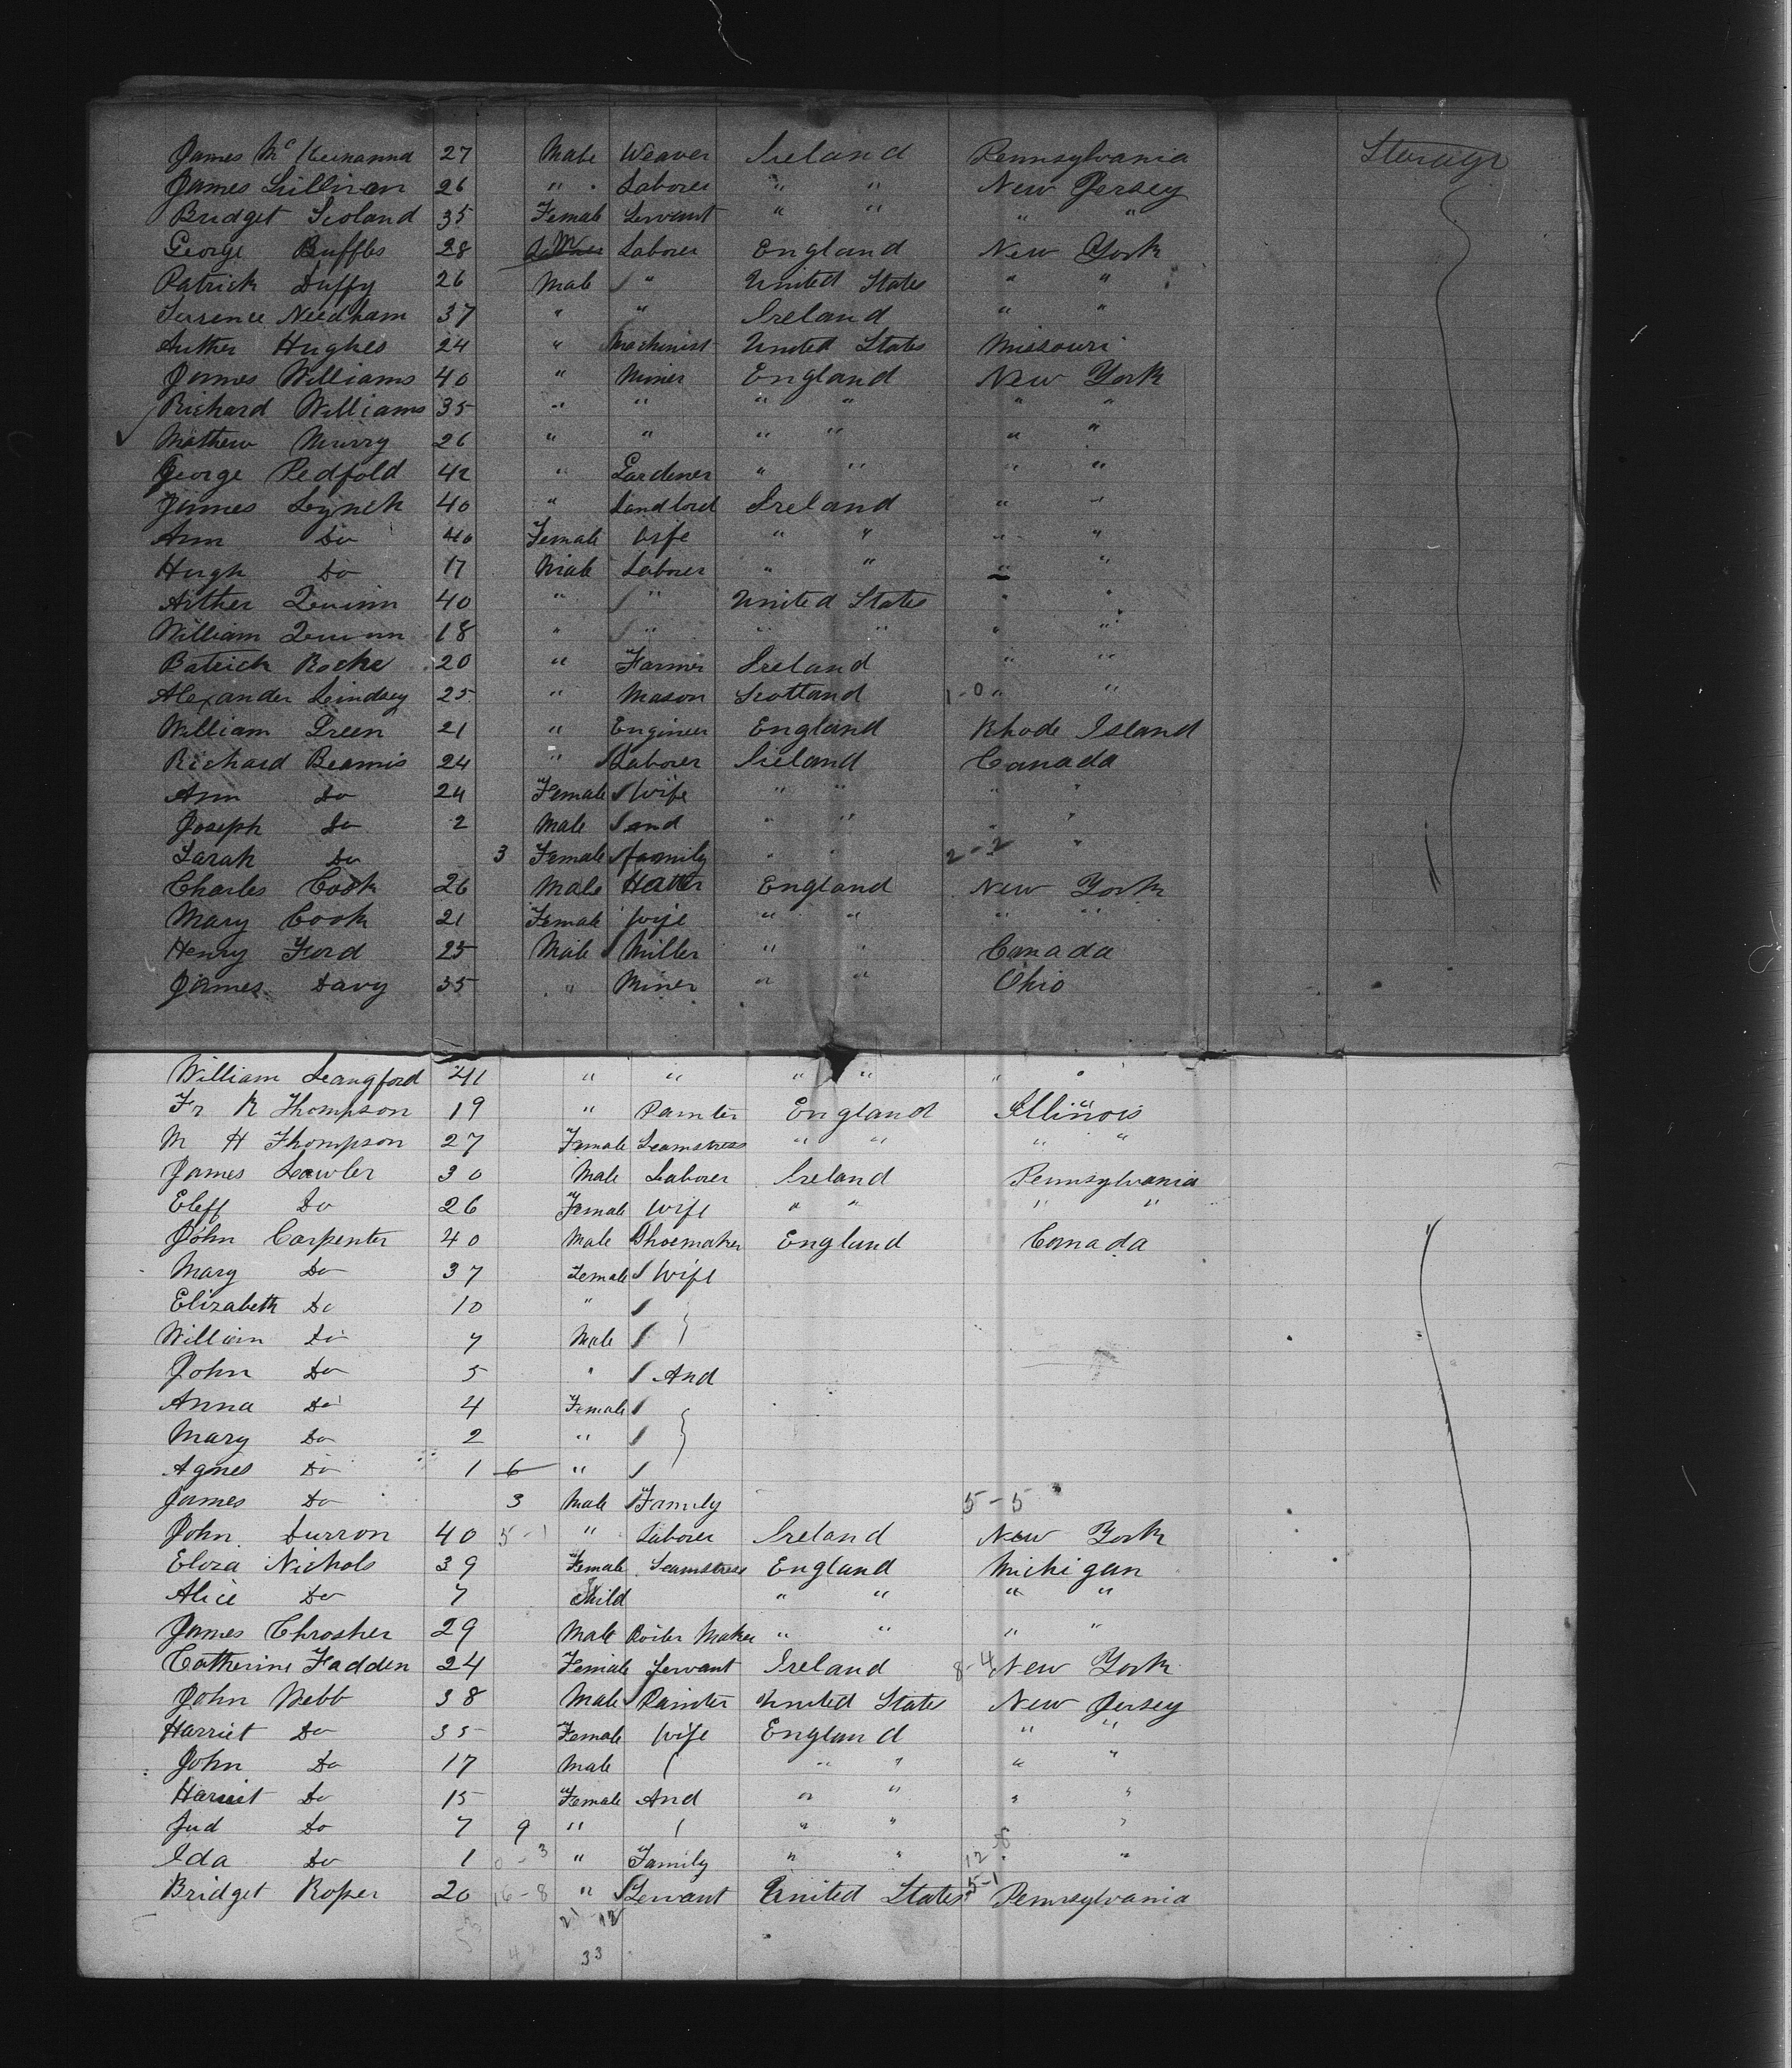 James Mc Kernannd 27 Male Weaver Ireland Pennsylvania Sterage
James Sullivan 26 " Laborer " " New Jersey
Bridget Scoland 35 Female Servant " " " "
George Buffles 28 Laborer England New York
Patrick Duffy 26 Male " United States " "
Terrence Needham 37 " " Ireland " "
Auther Hughes 24 " Machinist United States Missouri
James Williams 40 " Miner England New York
Richard Williams 35 " " " " " "
Mathew Murry 26 " " " " " "
George Pedfold 42 " Gardener " " " "
James Lynch 40 " Landlord Ireland " "
Ann Do 40 Female Wife " " " "
Hugh Do 17 Male Laborer " " " "
Arther Quinn 40 " " United States " "
William Quinn 18 " " " " " "
Patrick Roche 20 " Farmer Ireland " "
Alexander Lindsey 25 " Mason Scotland 1-0 " "
William Green 21 " Engineer England Rhode Island
Richard Beamis 24 " Laborer Ireland Canada
Ann Do 24 Female Wife " " " "
Joseph Do 2 Male and " " " "
Sarah Do 3 Female family " " 2-2 " "
Charles Cook 26 Male Hatter England New York
Mary Cook 21 Female Wife " " " "
Henry Ford 25 Male Miller " " Canada
James Davy 35 " Miner " " Ohio
William Leangford 41 " " " " " "
Fr R Thompson 19 " Painter England Illinois
M H Thompson 27 Female Seamstress " " " "
James Lawler 30 Male Laborer Ireland Pennsylvania
Eleff Do 26 Female Wife " " " "
John Carpenter 40 Male Shoemaker England Canada
Mary Do 37 Female Wife
Elizabeth Do 10 "
William Do 7 Male
John Do 5 " And
Anna Do 4 Female
Mary Do 2 "
Agnes Do 1 6 "
James Do 3 Male Family 5-5
John Durron 40 5-1 " Laborer Ireland New York
Eliza Nichols 39 Female Seamstress England Michigan
Alice Do 7 Child " " " "
James Throsher 29 Male Boiler Maker " " " "
Catherine Fadden 24 Female Servant Ireland 8-4 New York
John Webb 38 Male Painter United States New Jersey
Harriet Do 35 Female Wife England " "
John Do 17 Male " " " "
Harriet Do 15 Female And " " " "
Jud Do 7 9 " " " " "
Ida Do 1 0-3 " Family " " 12-8 " "
Bridget Roper 20 16-8 " Servant United States 5-1 Pennsylvania
21 12
33